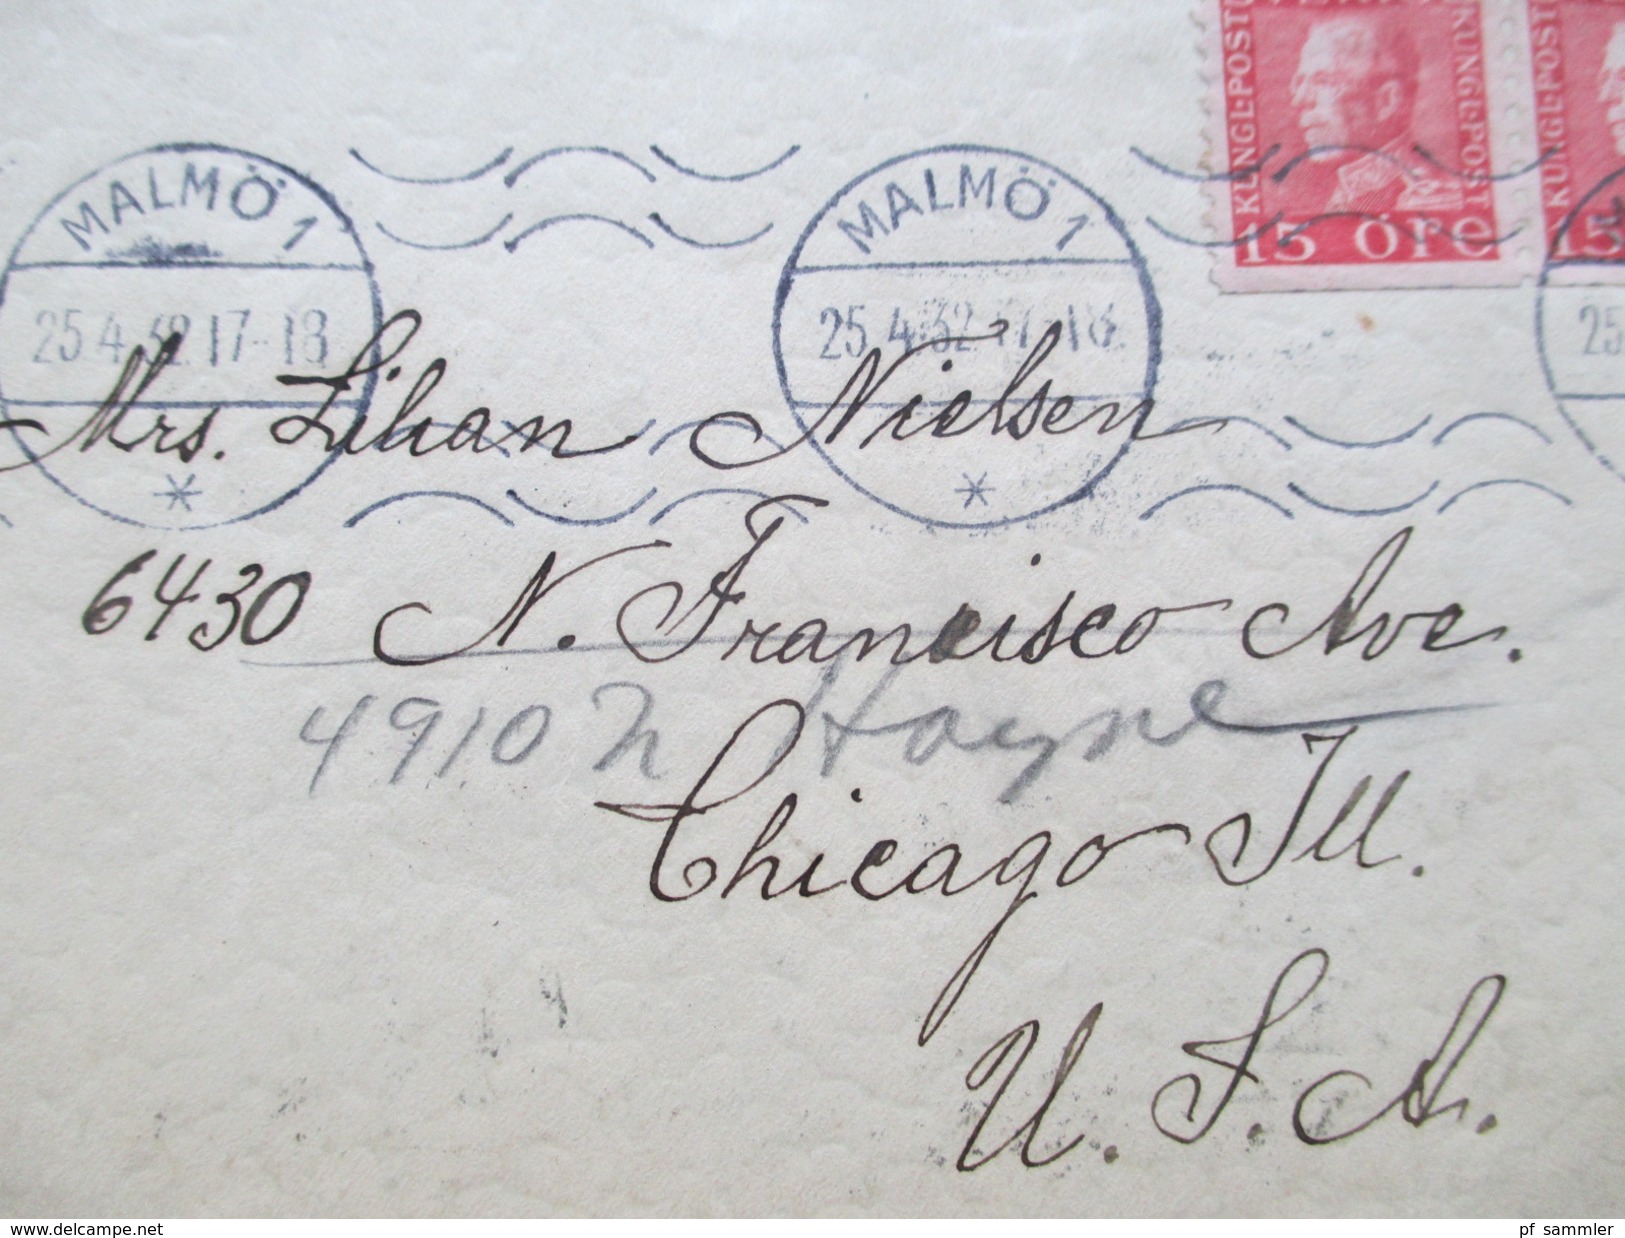 KUNGL·POSTV
KUNGL·POST
15 ÖRE
KUNGL·POST
15
MALMÖ 1
25.4.32.17-18
MALMÖ 1
25.4.32.17-18
25
Mrs. Lilian Nielsen
6430 N. Francisco Ave.
4910 N Hoyne
Chicago Ill.
U. S. A.
www.delcampe.net
pf_sammler